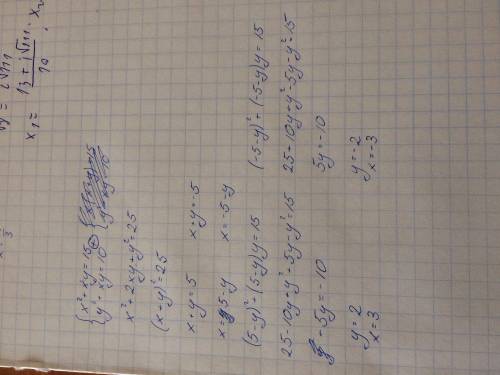 x₁ = 13 + i√111 / 10 ; x₂
{ x² + xy = 15
{ y² + xy = 10
x² + 2xy + y² = 25
(x + y)² = 25
x + y = 5 x + y = -5
x = 5 - y x = -5 - y
(5 - y)² + (5 - y)y = 15 (-5 - y)² + (-5 - y)y = 15
25 - 10y + y² + 5y - y² = 15 25 + 10y + y² - 5y - y² = 15
-5y = -10 5y = -10
y = 2 y = -2
x = 3 x = -3